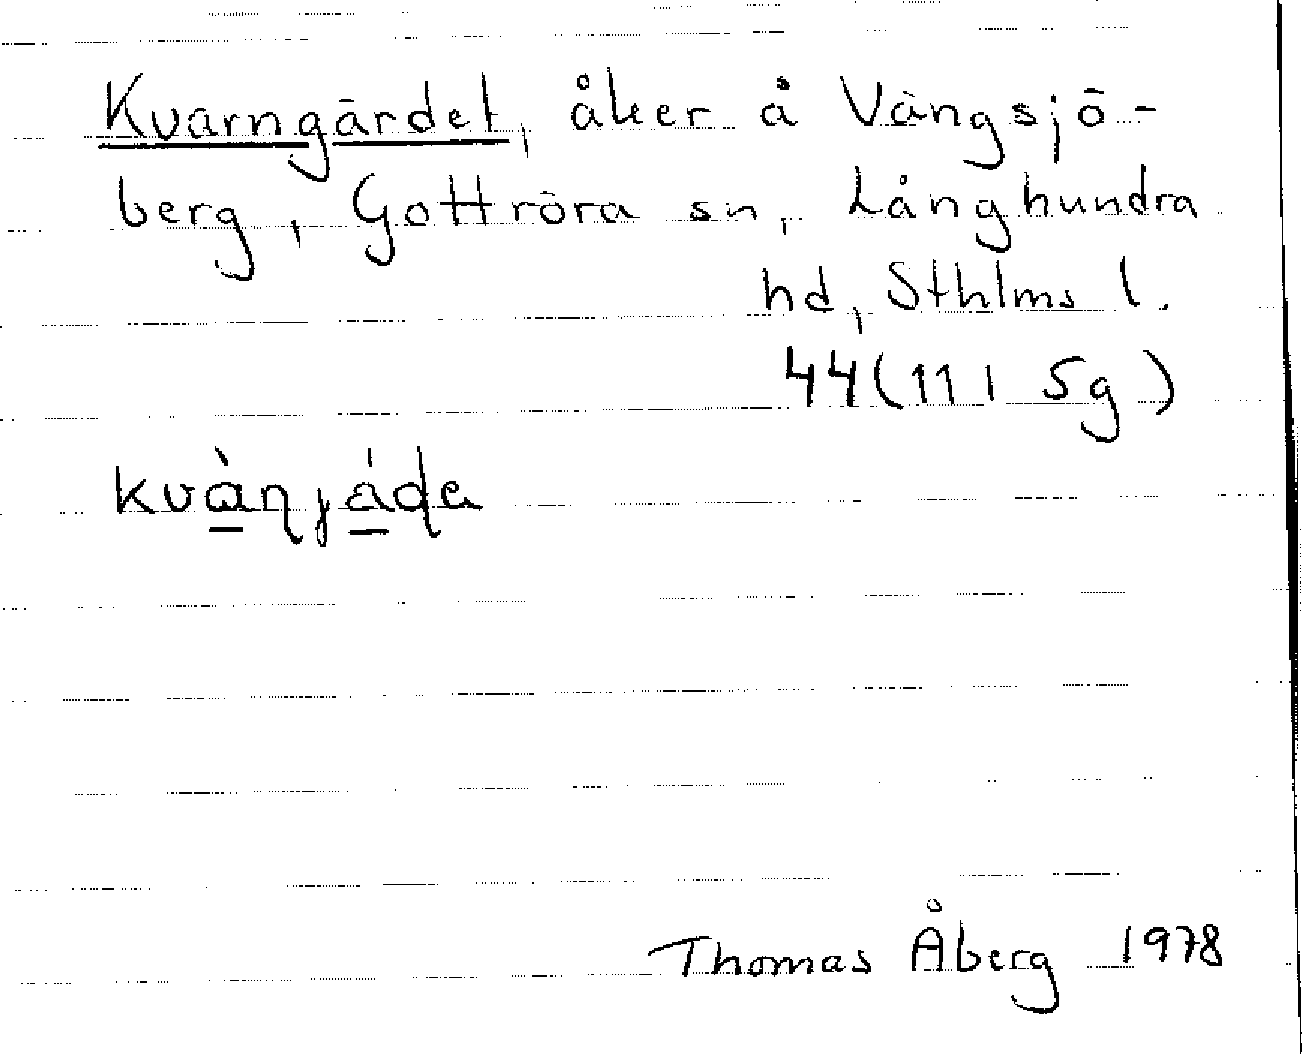 Kvarngärdet, åker å Vängsjö-
berg, Gottröra sn, Långhundra
hd, Sthlms l.
44 (11 I 5g)
Thomas Åberg 1978